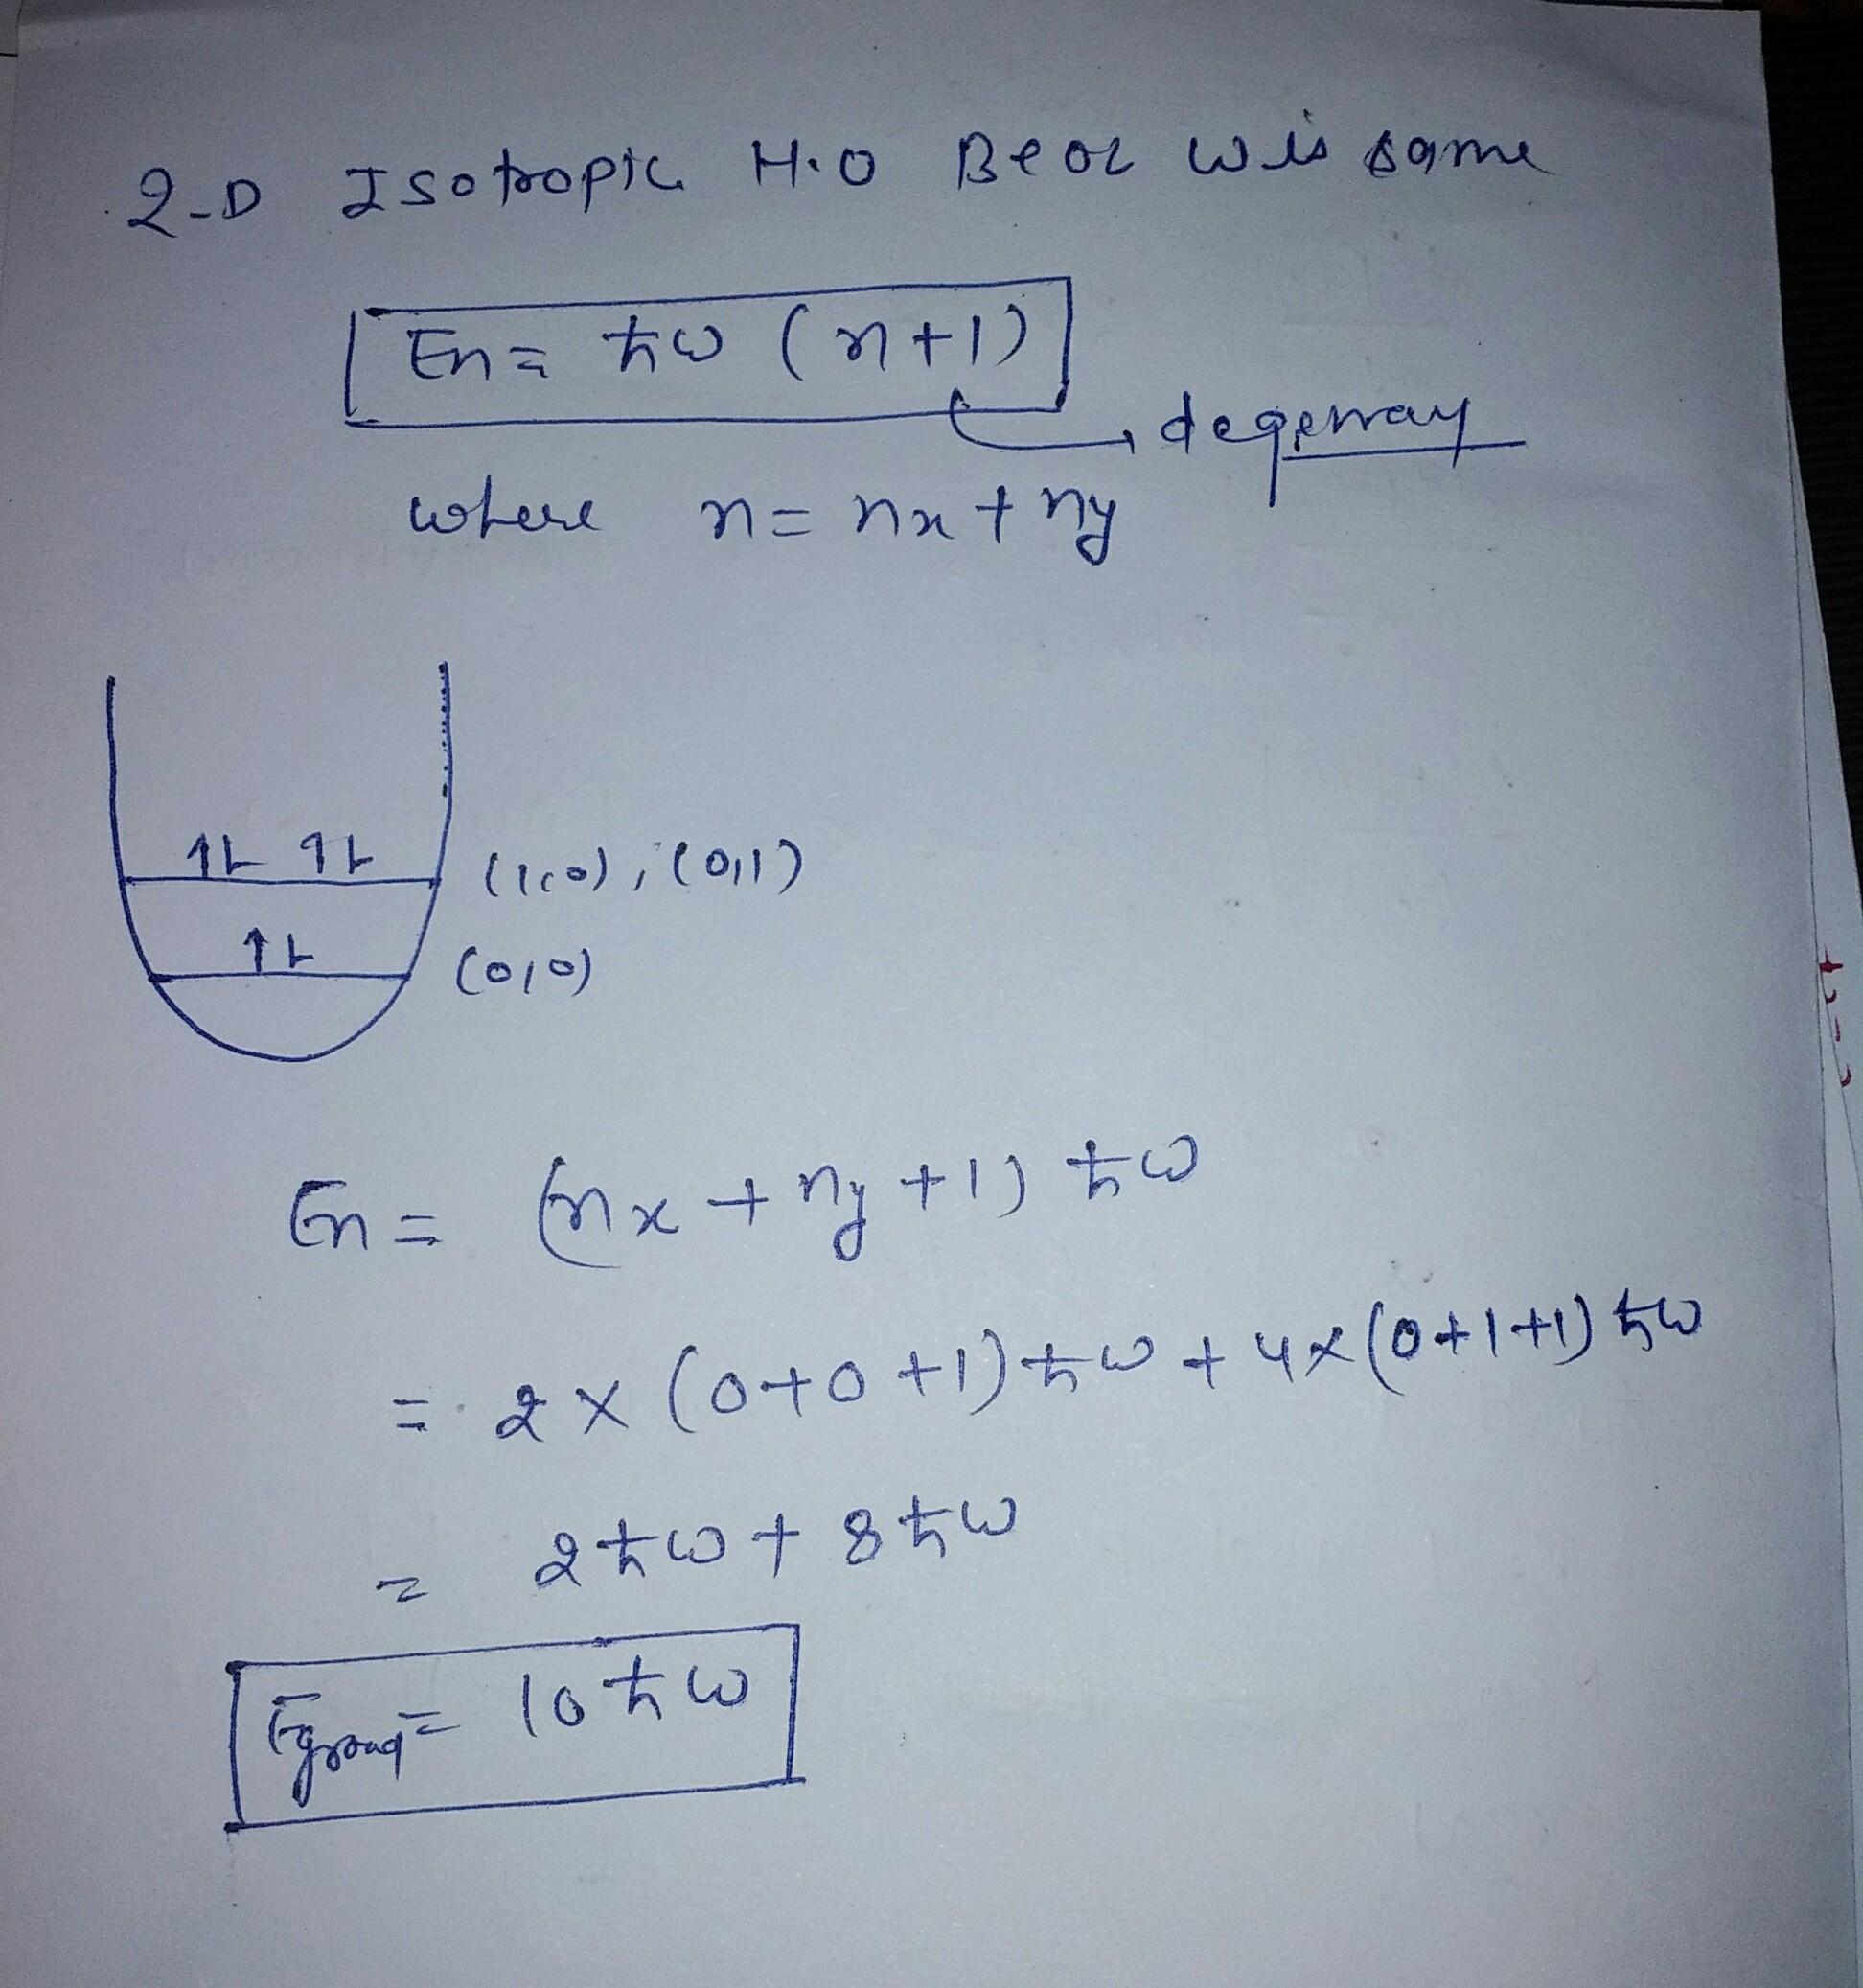 2-D Isotropic H.O Beoz w is same
En = ħω (n+1)
degenray
where n = nx + ny
↑↓ ↑↓ (1,0), (0,1)
↑↓ (0,0)
En = (nx + ny + 1) ħω
= 2 × (0+0+1) ħω + 4 × (0+1+1) ħω
= 2ħω + 8ħω
Eground = 10 ħω